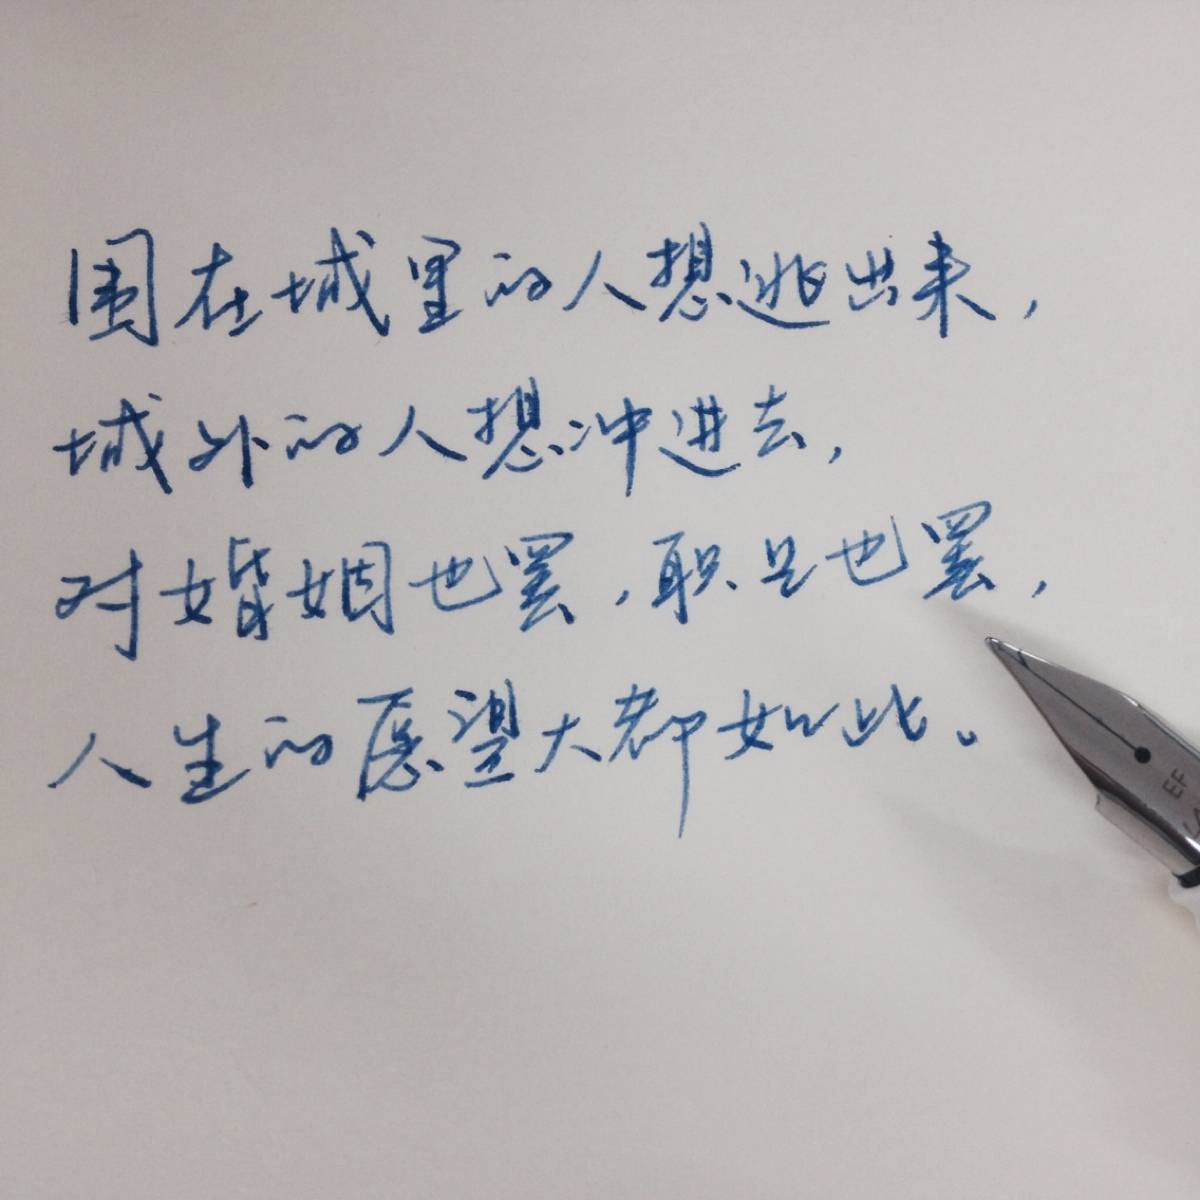 围在城里的人想逃出来，
城外的人想冲进去，
对婚姻也罢，职业也罢，
人生的愿望大都如此。
EF